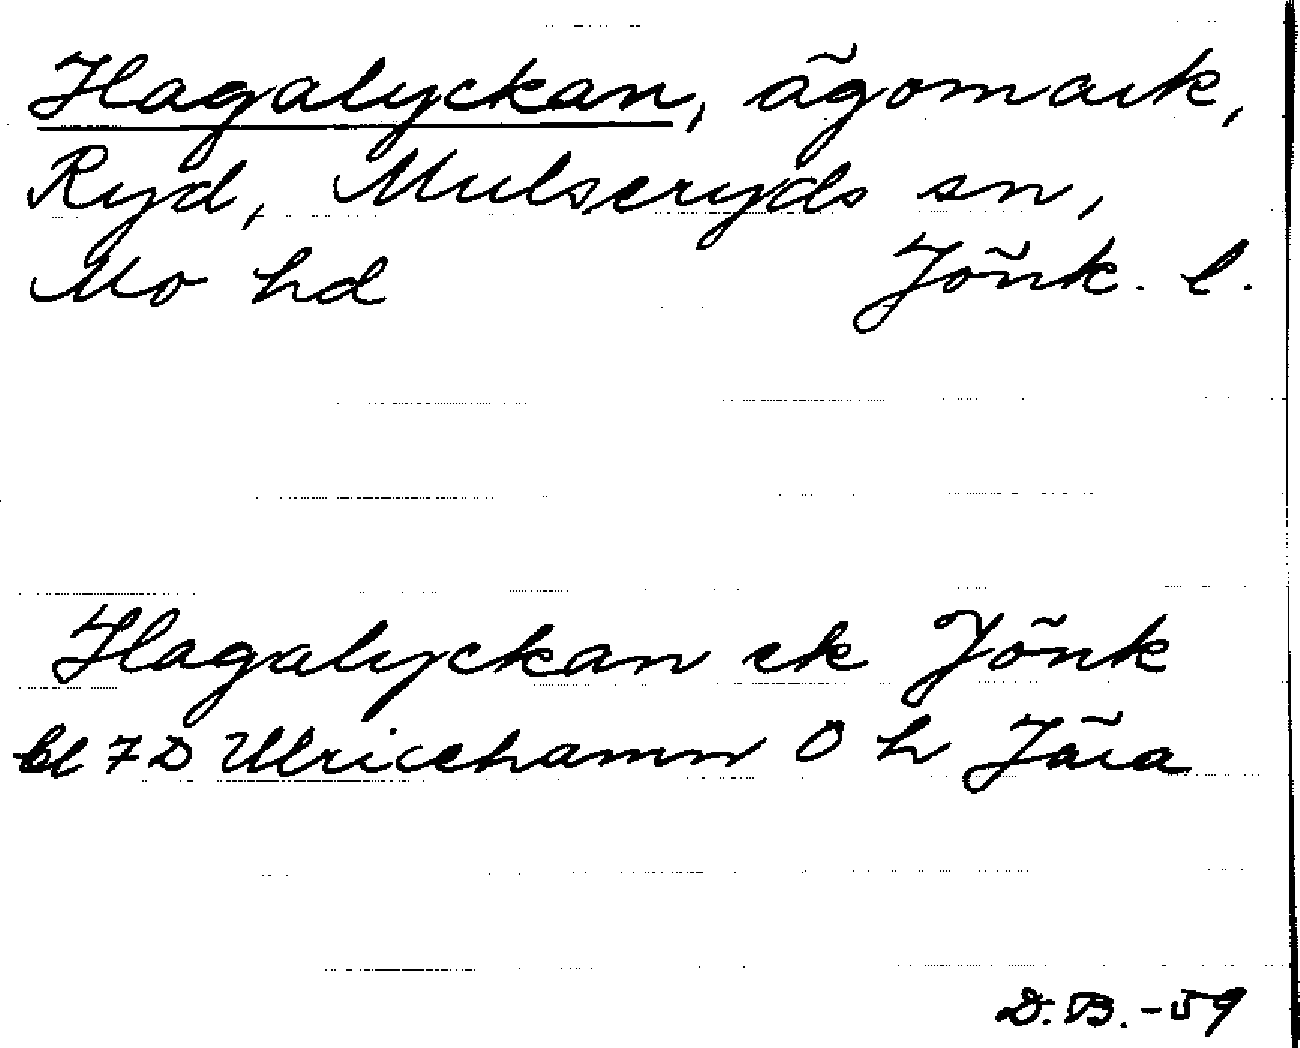 Hagalyckan, ägomark,
Ryd, Mulseryds sn,
Mo hd Jönk. l.
Hagalyckan ek Jönk
bl 7D Ulricehamn O h Jära
D.B.-59